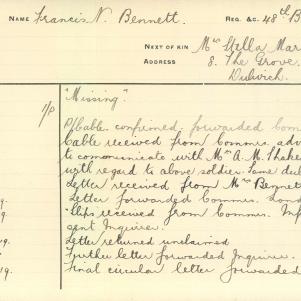 NAME Francis N. Bennett. REG. &C. 48th B
NEXT OF KIN Mrs Stella Mar
ADDRESS 8. The Grove.
Dulwich.
"Missing".
1/P
P/Cable. confirmed forwarded Comm
Cable received from Commrs. adv
to communicate with Mrs A. M. Shake
with regard to above soldier. Same du
Letter received from Mrs Bennett
9. Letter forwarded Commrs. Lond
Slips received from Commrs. Inf
sent Inquirer.
19. Letter returned unclaimed
Further letter forwarded Inquirer.
19. Final circular letter forwarded